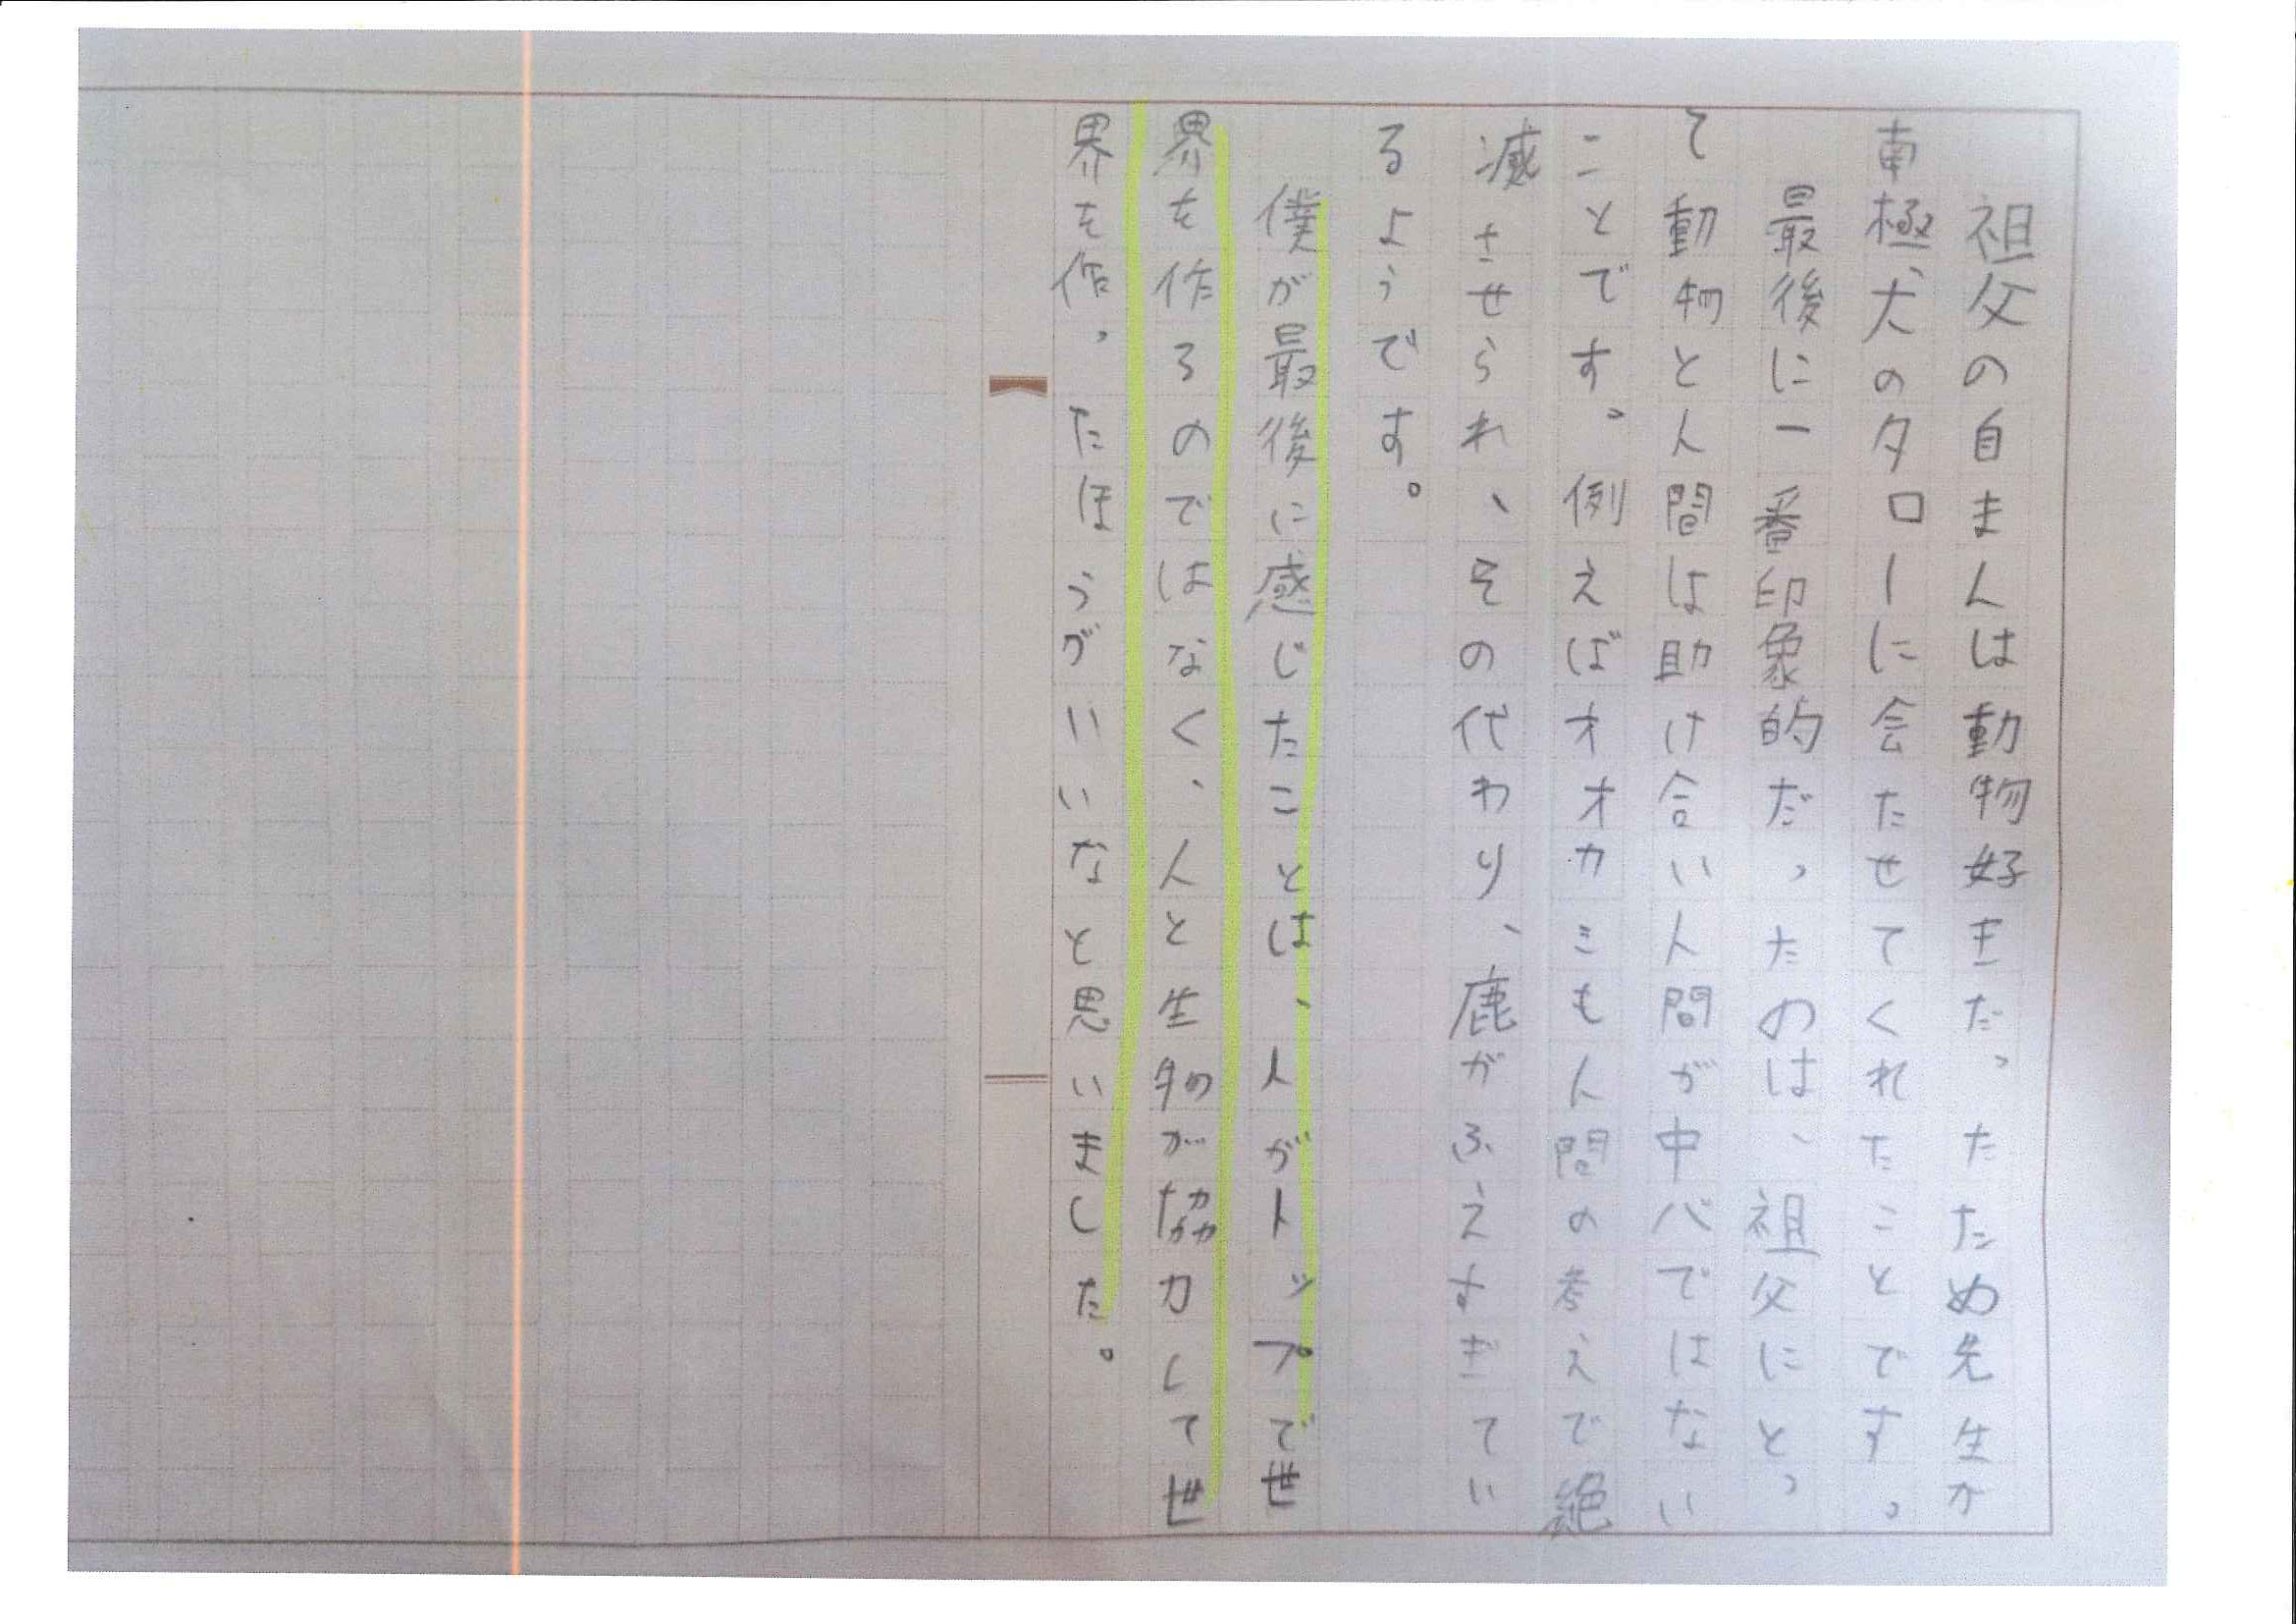 祖父の自まんは動物好きだったため先生が
南極犬のタローに会たせてくれたことです。
最後に一番印象的だったのは、祖父にとっ
て動物と人間は助け合い人間が中心ではない
ことです。例えばオオカミも人間の考えで絶
滅させられ、その代わり、鹿がふえすぎてい
るようです。
僕が最後に感じたことは、人がトップで世
界を作るのではなく、人と生物が協力して世
界を作ったほうがいいなと思いました。